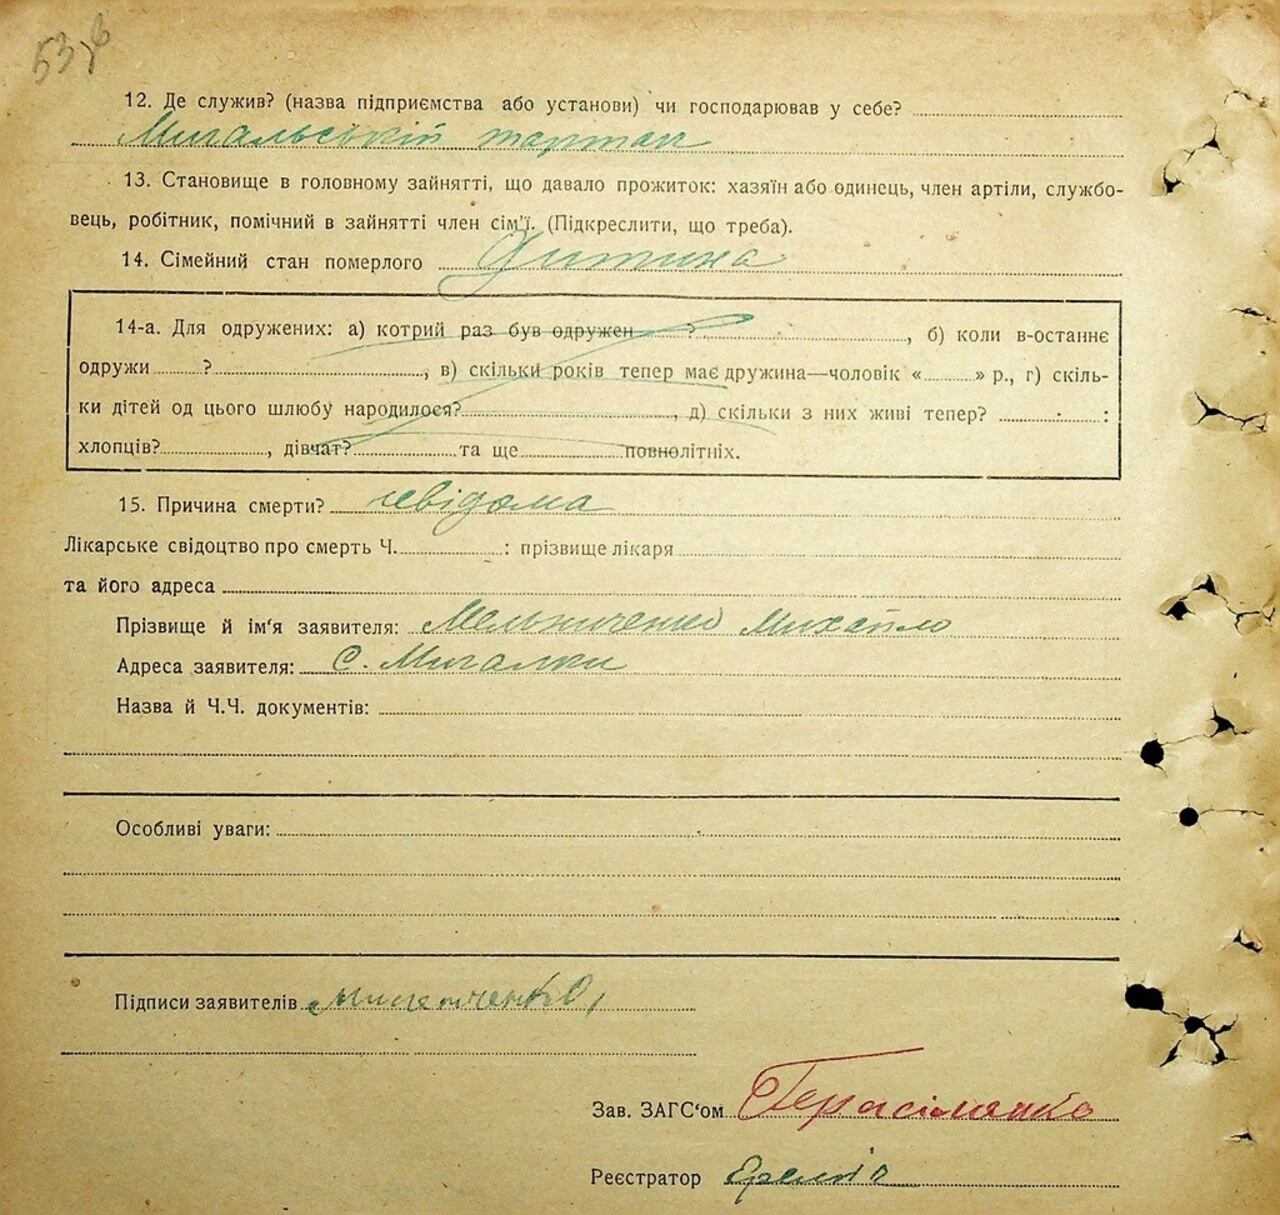 53
12. Де служив? (назва підприємства або установи) чи господарював у себе?
Мигальській тартак
13. Становище в головному зайнятті, що давало прожиток: хазяїн або одинець, член артіли, службо-
вець, робітник, помічний в зайнятті член сім'ї. (Підкреслити, що треба).
14. Сімейний стан померлого Дитина
14-а. Для одружених: а) котрий раз був одружен ? , б) коли в-останнє
одружи ? , в) скільки років тепер має дружина—чоловік « » р., г) скіль-
ки дітей од цього шлюбу народилося? , д) скільки з них живі тепер? :
хлопців? , дівчат? та ще повнолітніх.
15. Причина смерти? невідома
Лікарське свідоцтво про смерть Ч. : прізвище лікаря
та його адреса
Прізвище й ім'я заявителя: Мельниченко Михайло
Адреса заявителя: С. Мигалки
Назва й Ч.Ч. документів:
Особливі уваги:
Підписи заявителів
Зав. ЗАГС'ом Герасіменко
Реєстратор